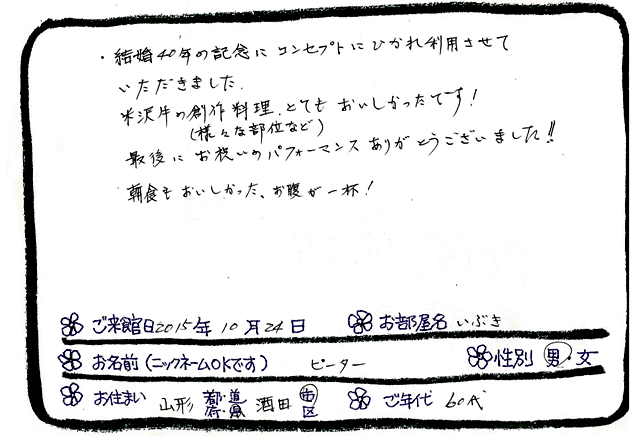 ・結婚40年の記念にコンセプトにひかれ利用させて
いただきました.
米沢牛の創作料理.とてもおいしかったです!
(様々な部位など)
最後にお祝いのパフォーマンスありがとうございました!!
朝食もおいしかった、お腹が一杯!
ご来館日2015年10月24日 お部屋名 いぶき
お名前(ニックネームOKです) ピーター 性別 男・女
お住まい 山形 都・道・府・県 酒田 市・区 ご年代 60代